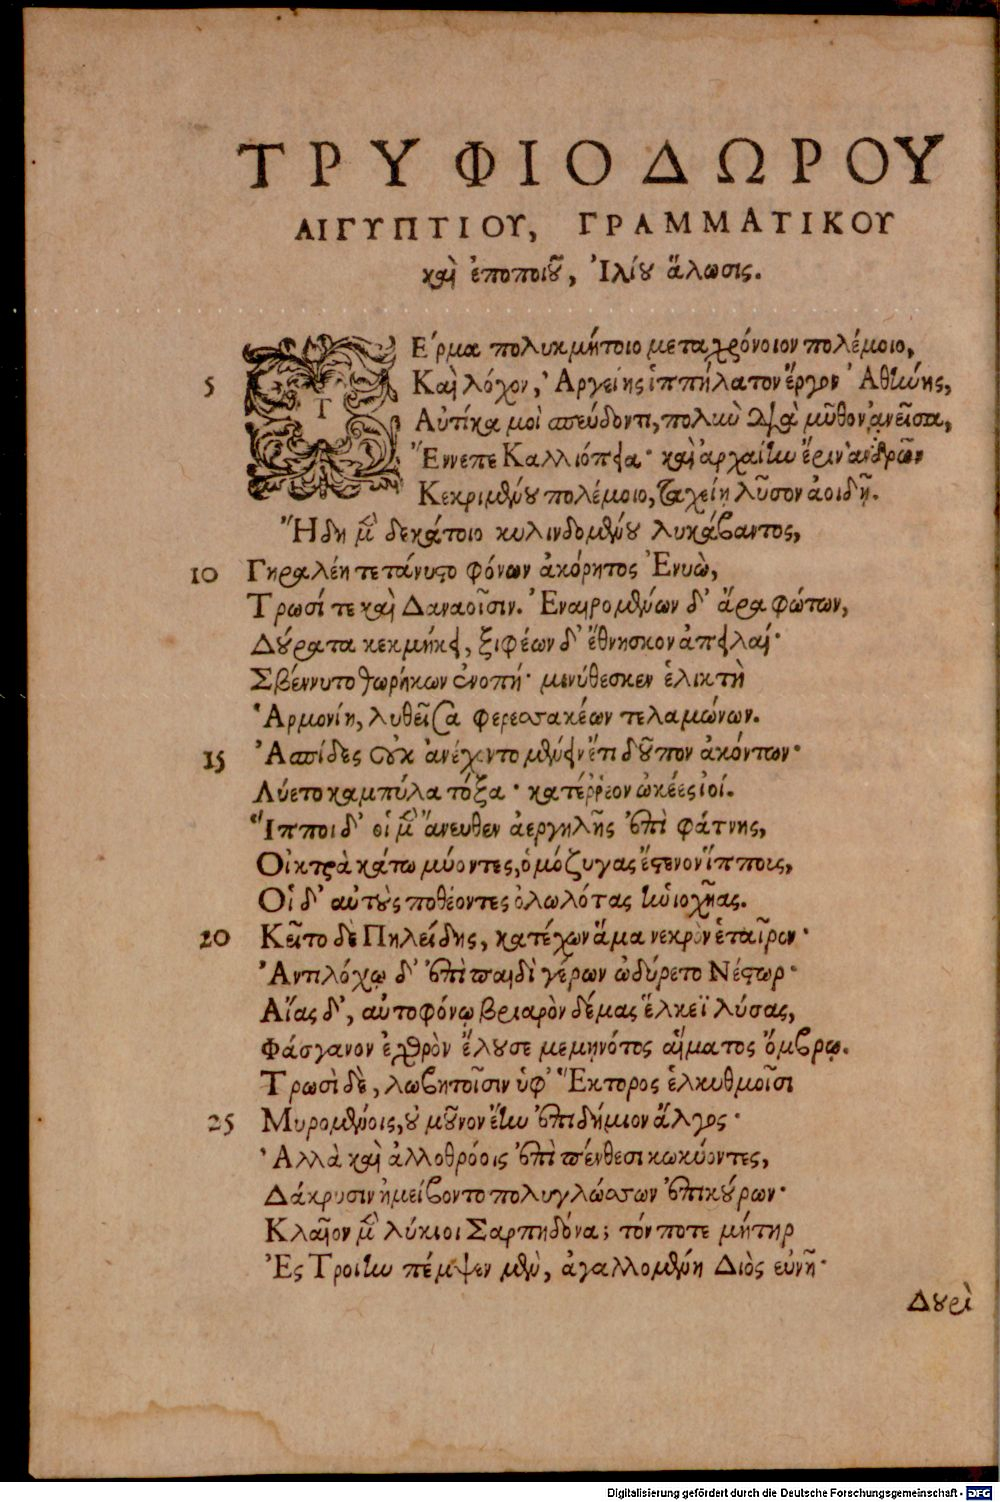 ΤΡΥΦΙΟΔΩΡΟΥ
ΑΙΓΥΠΤΙΟΥ, ΓΡΑΜΜΑΤΙΚΟΥ
καὶ ἐποποιοῦ, Ἰλίου ἅλωσις.
ΤΕ´ρμα πολυκμήτοιο μεταχρόνοιον πολέμοιο,
5 Καὶ λόχον, Ἀργείης ἱππήλατον ἔργον Ἀθήνης,
Αὐτίκα μοὶ σπεύδοντι, πολὺν διὰ μῦθον ἀνεῖσα,
Ἔννεπε Καλλιόπεια· καὶ ἀρχαίην ἔριν ἀνδρῶν
Κεκριμένου πολέμοιο, ταχείῃ λῦσον ἀοιδῇ.
Ἤδη μὲν δεκάτοιο κυλινδομένου λυκάβαντος,
10 Γηραλέη τετάνυστο φόνων ἀκόρητος Ἐνυὼ,
Τρωσί τε καὶ Δαναοῖσιν. Ἐναιρομένων δ' ἄρα φώτων,
Δούρατα κεκμήκει, ξιφέων δ' ἔθνησκον ἀπειλαί·
Σβέννυτο θωρήκων ἐνοπή· μινύθεσκεν ἑλικτὴ
Ἁρμονίη, λυθεῖσα φερεσσακέων τελαμώνων.
15 Ἀσπίδες οὐκ ἀνέχοντο μένειν ἔτι δοῦπον ἀκόντων·
Λύετο καμπύλα τόξα· κατέῤῥεον ὠκέες ἰοί.
Ἵπποι δ' οἱ μὲν ἄνευθεν ἀεργηλῆς ἐπὶ φάτνης,
Οἰκτρὰ κάτω μύοντες, ὁμόζυγας ἔστενον ἵππους,
Οἱ δ' αὐτοὺς ποθέοντες ὀλωλότας ἡνιοχῆας.
20 Κεῖτο δὲ Πηλείδης, κατέχων ἅμα νεκρὸν ἑταῖρον·
Ἀντιλόχῳ δ' ἐπὶ παιδὶ γέρων ὠδύρετο Νέστωρ·
Αἴας δ', αὐτοφόνῳ βριαρὸν δέμας ἕλκεϊ λύσας,
Φάσγανον ἐχθρὸν ἔλουσε μεμηνότος αἵματος ὄμβρῳ.
Τρωσὶ δὲ, λωβητοῖσιν ὑφ' Ἕκτορος ἑλκυθμοῖσι
25 Μυρομένοις, οὐ μοῦνον ἔην ἐπιδήμιον ἄλγος·
Ἀλλὰ καὶ ἀλλοθρόοις ἐπὶ πένθεσι κωκύοντες,
Δάκρυσιν ἠμείβοντο πολυγλώσσων ἐπικούρων·
Κλαῖον μὲν λύκιοι Σαρπηδόνα; τόν ποτε μήτηρ
Ἐς Τροίην πέμψεν μὲν, ἀγαλλομένη Διὸς εὐνῇ·
Δουρὶ
Digitalisierung gefördert durch die Deutsche Forschungsgemeinschaft - DFG